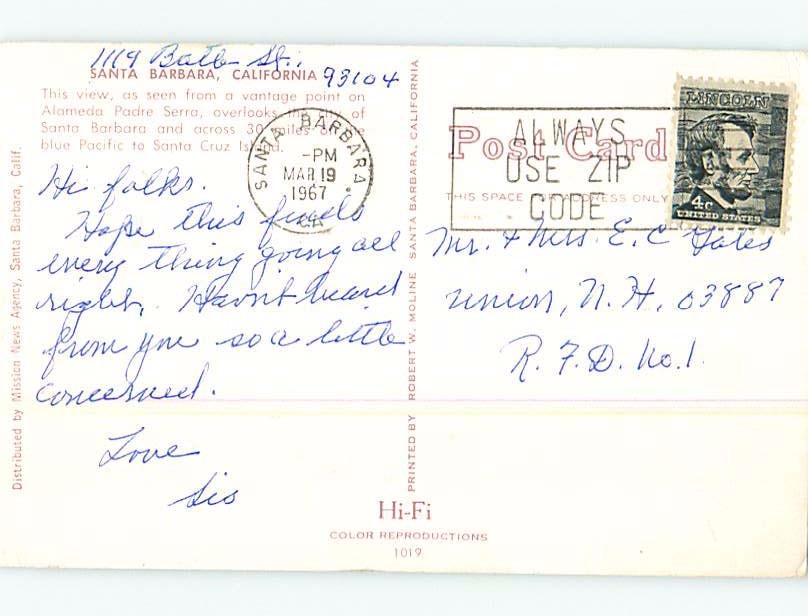 1119 Bath St.,
SANTA BARBARA, CALIFORNIA 93104
This view, as seen from a vantage point on
Alameda Padre Serra, overlooks of
Santa Barbara and across 30 miles of
blue Pacific to Santa Cruz
Hi folks.
Hope this finds
every thing going all
right. Havn't heard
from you so a little
concerned.
Love
Sis
Distributed by Mission News Agency, Santa Barbara, Calif.
PRINTED BY ROBERT W. MOLINE SANTA BARBARA, CALIFORNIA
SANTA BARBARA
-PM
MAR 19
1967
CA
ALWAYS
USE ZIP
CODE
Post Card
THIS SPACE FOR ADDRESS ONLY
LINCOLN
4c
UNITED STATES
Mr. & Mrs. E. C Gates
Union, N. H. 03887
R. F. D. No. 1.
Hi-Fi
COLOR REPRODUCTIONS
1019